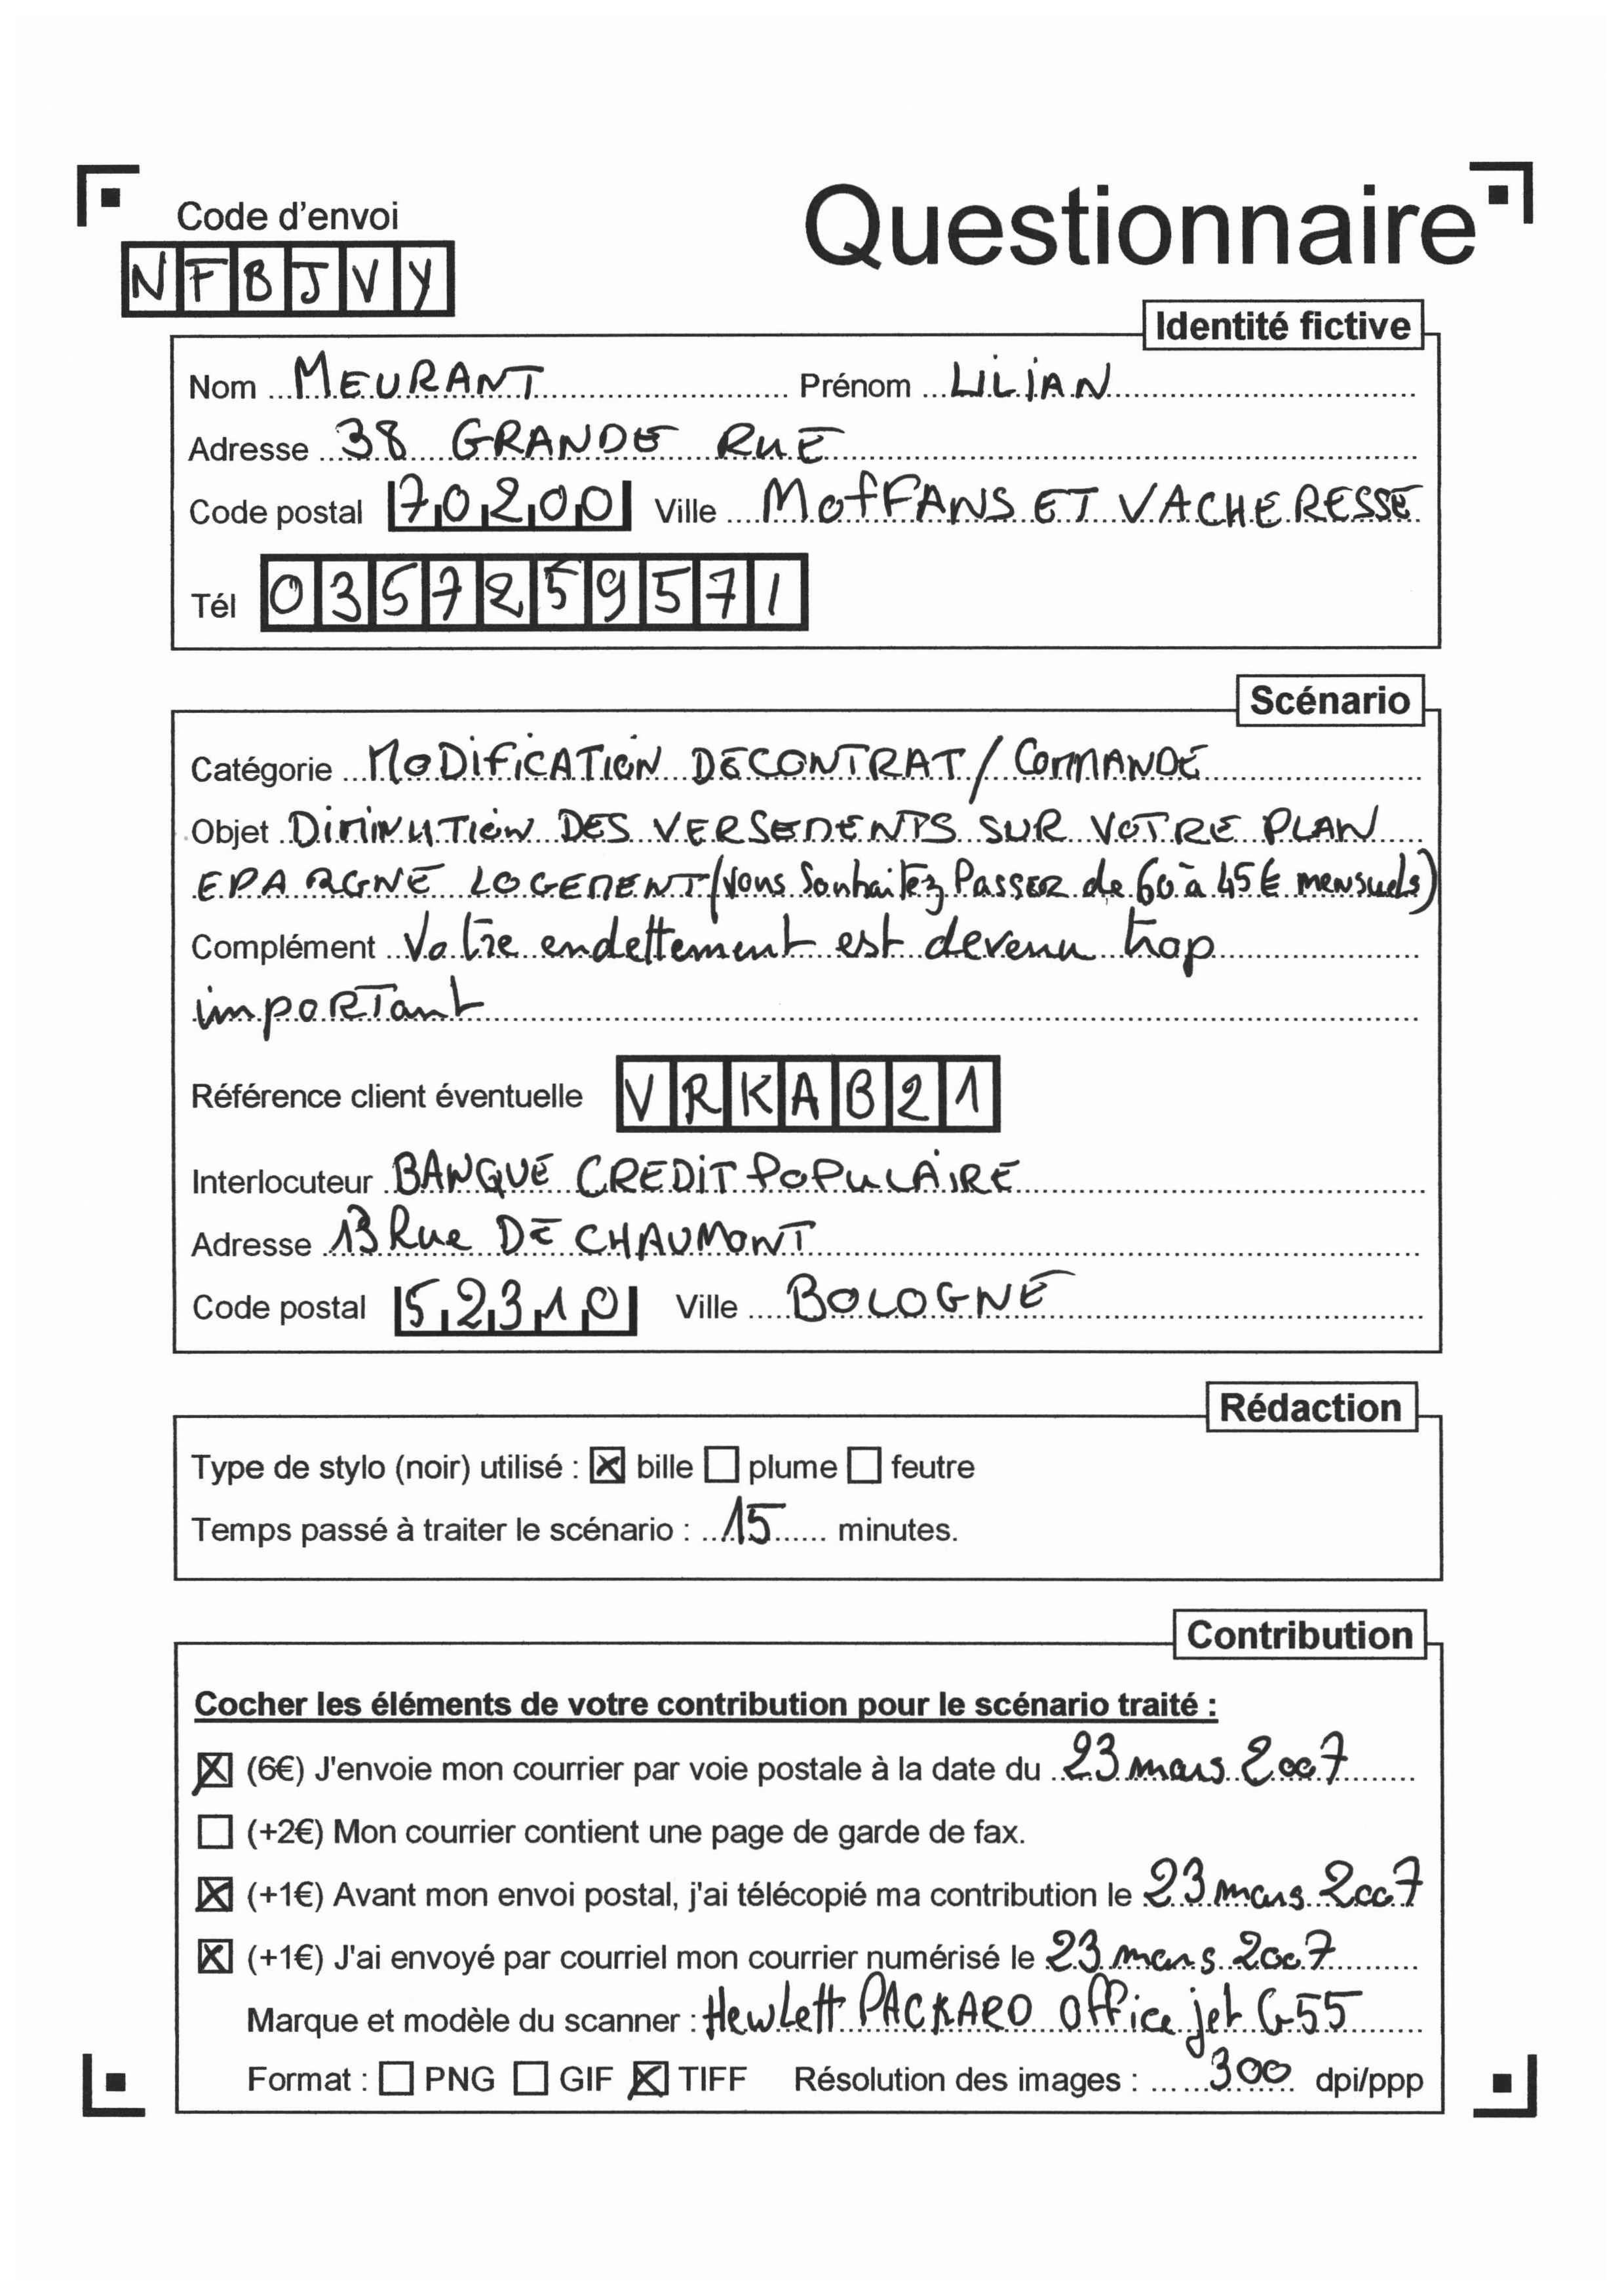 Questionnaire
Code d'envoi
NFBJVY
Identité fictive
Nom MEURANT Prénom LILIAN
Adresse 38 GRANDE RUE
Code postal 70200 Ville MOFFANS ET VACHERESSE
Tél 0357259571
Scénario
Catégorie MODIFICATION DE CONTRAT / COMMANDE
Objet DIMINUTION DES VERSEMENTS SUR VOTRE PLAN
EPARGNE LOGEMENT (Vous Souhaitez Passer de 60 à 45€ mensuels)
Complément Votre endettement est devenu trop
important
Référence client éventuelle VRKAB21
Interlocuteur BANQUE CREDIT POPULAIRE
Adresse 13 Rue DE CHAUMONT
Code postal 52310 Ville BOLOGNE
Rédaction
Type de stylo (noir) utilisé : ☒ bille ☐ plume ☐ feutre
Temps passé à traiter le scénario : 15 minutes.
Contribution
Cocher les éléments de votre contribution pour le scénario traité :
☒ (6€) J'envoie mon courrier par voie postale à la date du 23 mars 2007
☐ (+2€) Mon courrier contient une page de garde de fax.
☒ (+1€) Avant mon envoi postal, j'ai télécopié ma contribution le 23 mars 2007
☒ (+1€) J'ai envoyé par courriel mon courrier numérisé le 23 mars 2007
Marque et modèle du scanner : HewLett PACKARD Office jet G55
Format : ☐ PNG ☐ GIF ☒ TIFF Résolution des images : 300 dpi/ppp